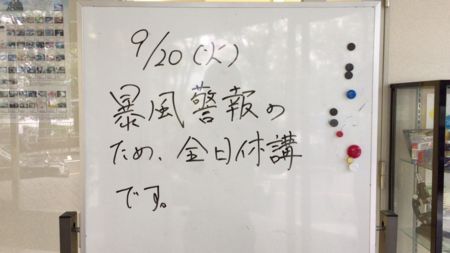 9/20(火)
暴風警報の
ため、全日休講
です。